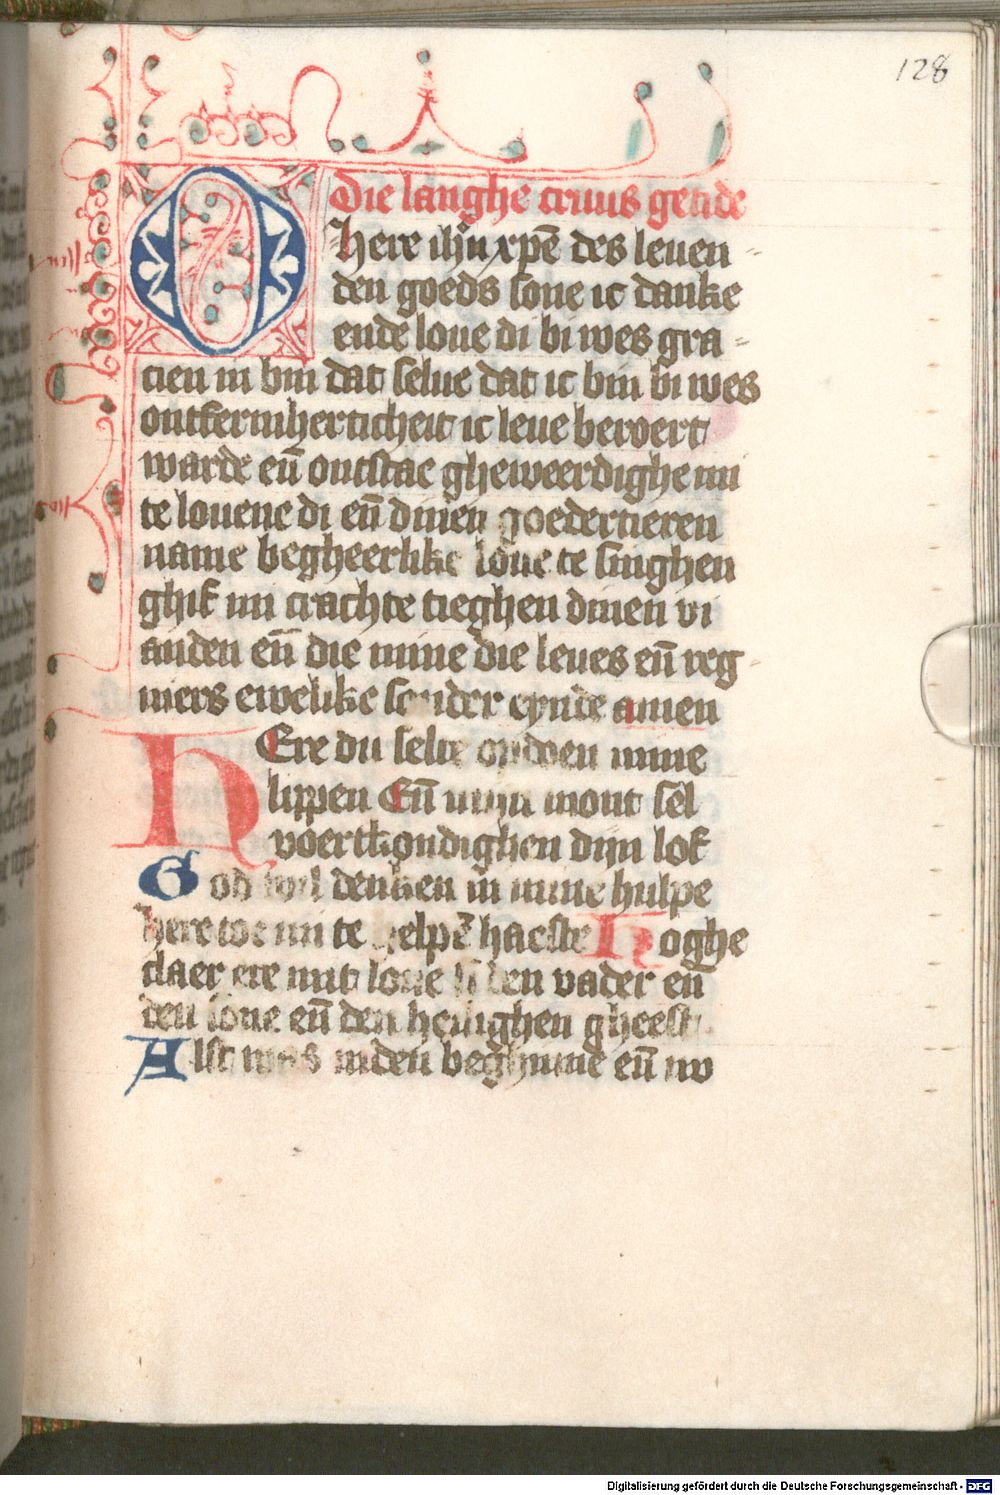 128
Die langhe cruus getide
O here ihu xpē des leuen
den goeds sone ic danke
ende loue di bi wes gra
cien in bin dat selue dat ic bin bi wes
ontfermherticheit ic leue beroert
warde eñ ontstac gheweerdighe mi
te louene di eñ dinen goedertieren
name begheerlike loue te singhen
ghif mi crachte tieghen dinen vi
anden eñ die mine die leues eñ reg
niers ewelike sonder eynde amen
HEre du selte opdoen mine
lippen Eñ mijn mont sel
voertkondighen dijn lof
God wil denken in mine hulpe
here toe mi te helpē haeste Hoghe
claer ere mit loue si den vader eñ
den sone eñ den heilighen gheest
Alst was inden beghinne eñ nv
Digitalisierung gefördert durch die Deutsche Forschungsgemeinschaft - DFG